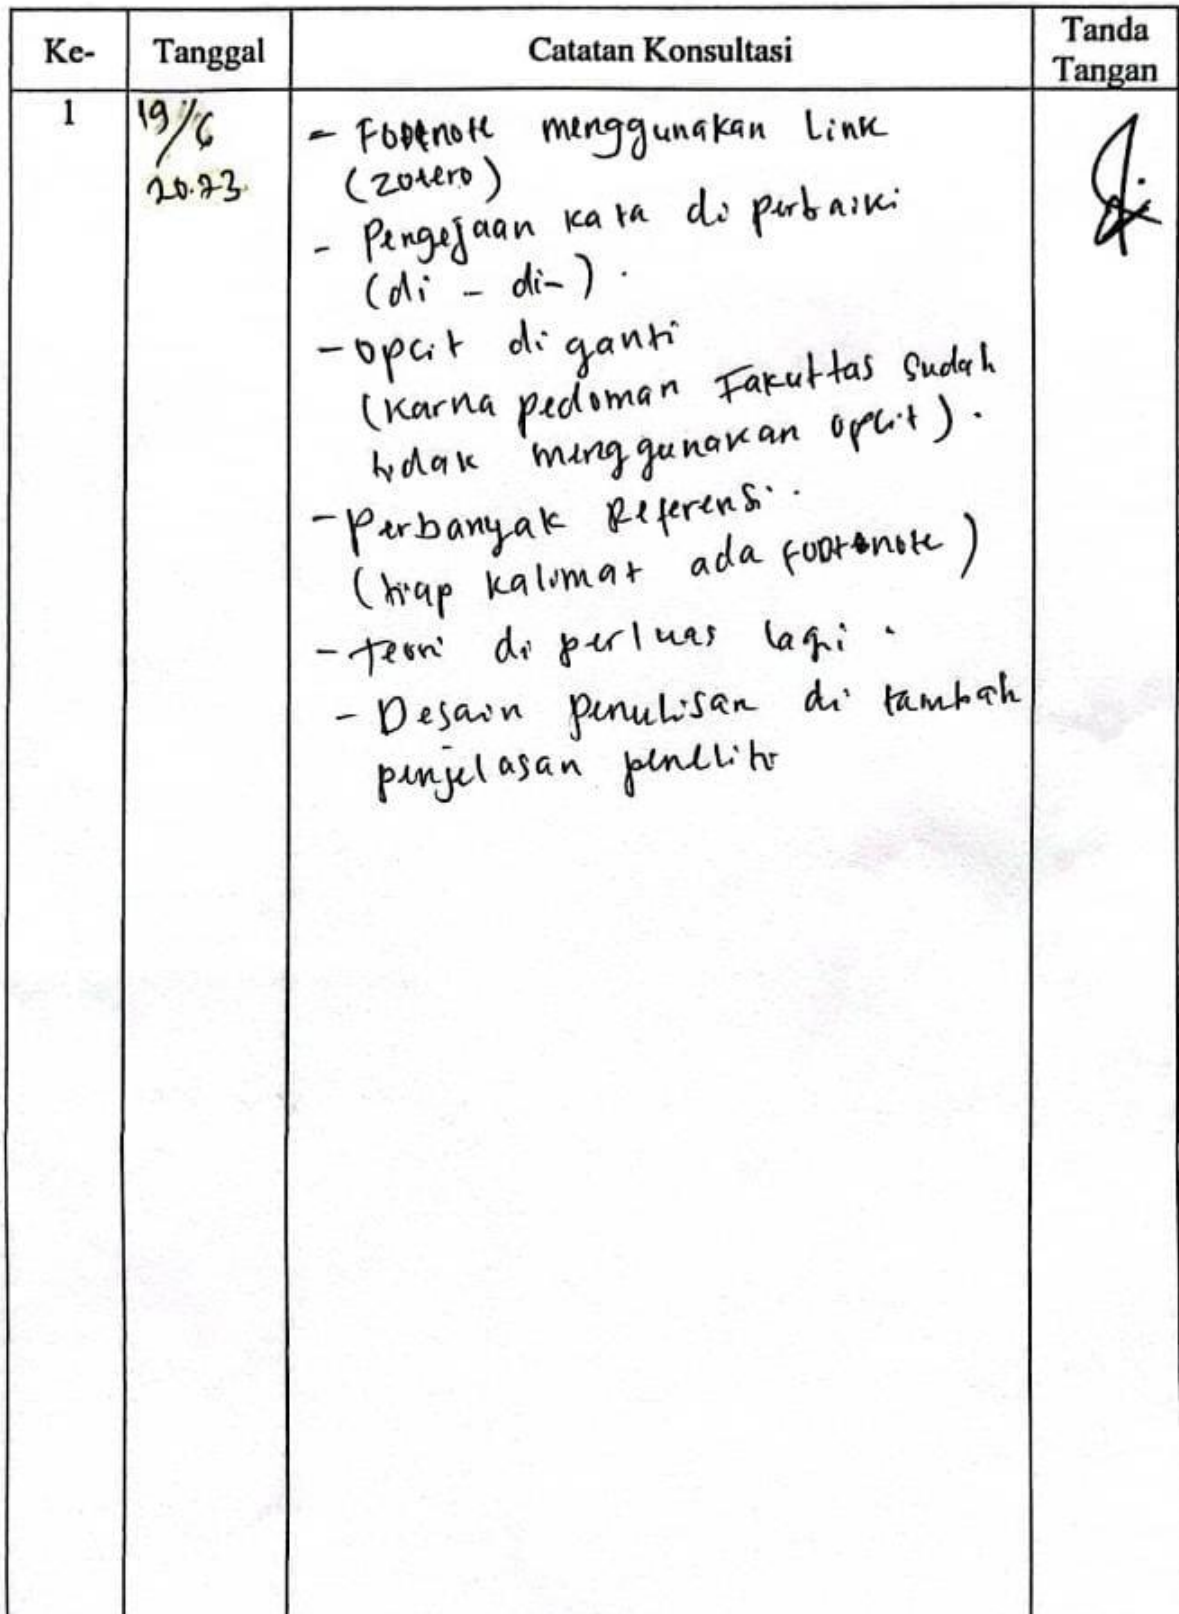 Ke- Tanggal Catatan Konsultasi Tanda Tangan
1 19/6 - Footnote menggunakan Link
2023 (zotero)
- Pengejaan kata di perbaiki
(di - di-).
- opcit di ganti
(karna pedoman Fakultas sudah
tidak menggunakan opcit).
- Perbanyak Referensi.
(tiap kalimat ada footnote)
- teori di perluas lagi.
- Desain penulisan di tambah
penjelasan peneliti